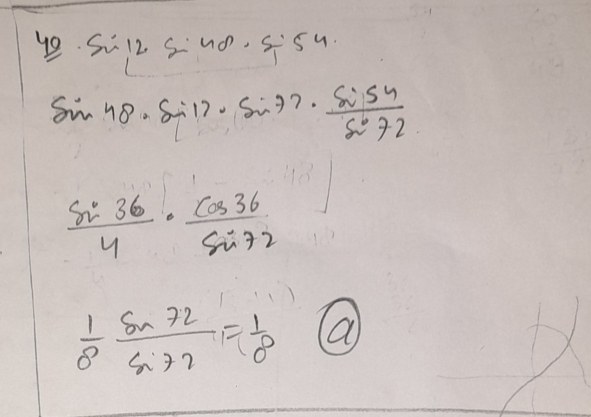 40. Sin 12 Sin 48 . Sin 54.
Sin 48 . Sin 12 . Sin 72 . Sin 54 / Sin 72
Sin 36 / 4 . Cos 36 / Sin 72
1/8 Sin 72 / Sin 72 = 1/8 (a)